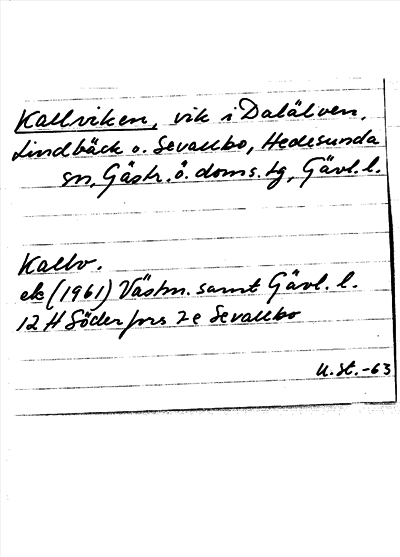 Kallviken, vik i Dalälven,
Lindbäck o. Sevallbo, Hedesunda
sn, Gästr. ö. doms. tg, Gävl. l.
Kallv.
ek (1961) Västm. samt Gävl. l.
12 H Söderfors 2 e Sevallbo
U. St. -63